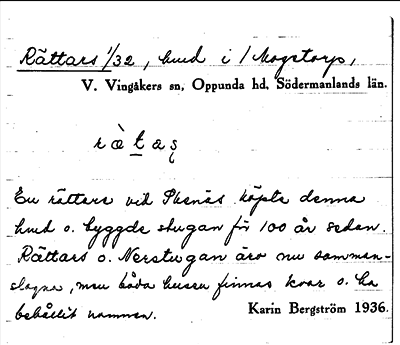 Rättars 1/32, hmd i 1 Mogstorp,
V. Vingåkers sn, Oppunda hd, Södermanlands län.
ràtas
En rättare vid Skenäs köpte denna
hmd o. byggde stugan för 100 år sedan.
Rättars o. Nerstugan äro nu samman-
slagna, men båda husen finnas kvar o. ha
behållit namnen.
Karin Bergström 1936.